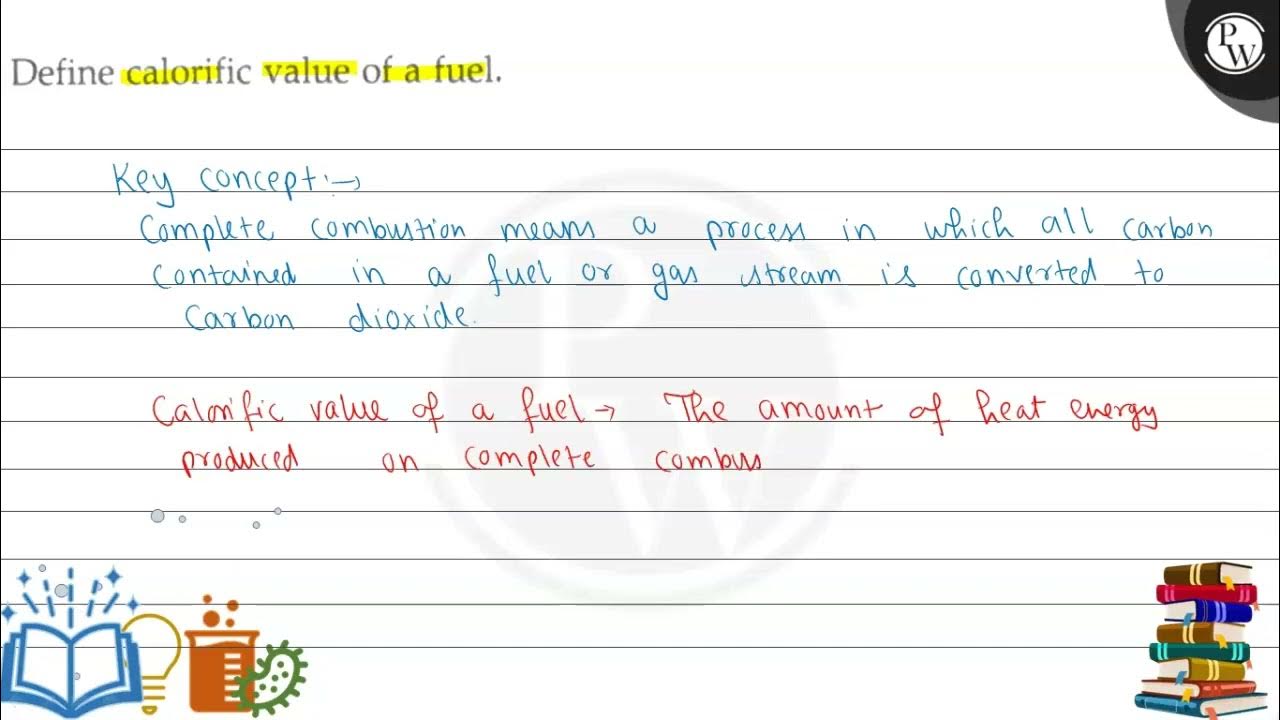 PW
Define calorific value of a fuel.
Key concept:→
Complete combustion means a process in which all carbon
contained in a fuel or gas stream is converted to
Carbon dioxide.
Calorific value of a fuel → The amount of heat energy
produced on complete combus
PW